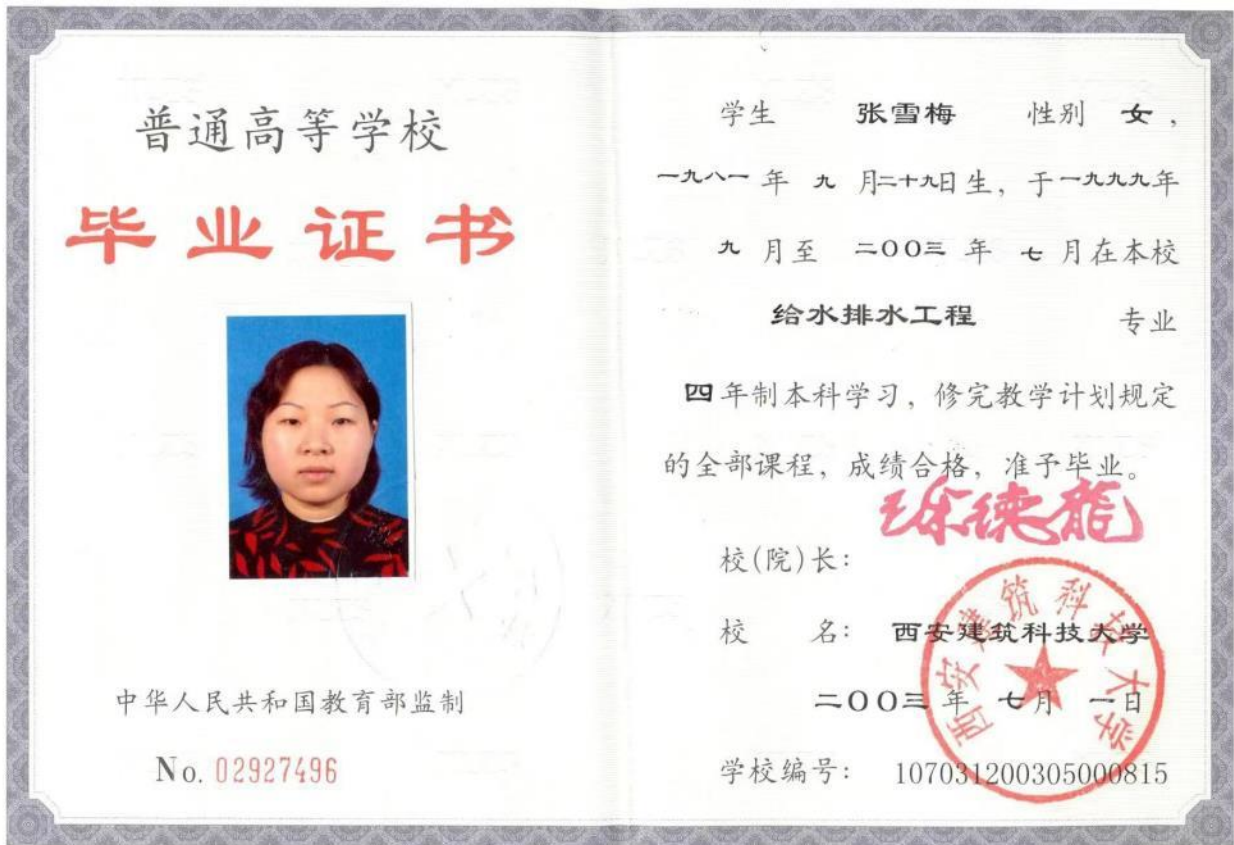 普通高等学校
毕业证书
中华人民共和国教育部监制
No. 02927496
学生 张雪梅 性别 女,
一九八一 年 九 月二十九日生, 于一九九九年
九 月至 二〇〇三 年 七 月在本校
给水排水工程 专业
四年制本科学习, 修完教学计划规定
的全部课程, 成绩合格, 准予毕业。
校(院)长:
校 名: 西安建筑科技大学
二〇〇三 年 七 月 一 日
学校编号: 107031200305000815
西安建筑科技大学